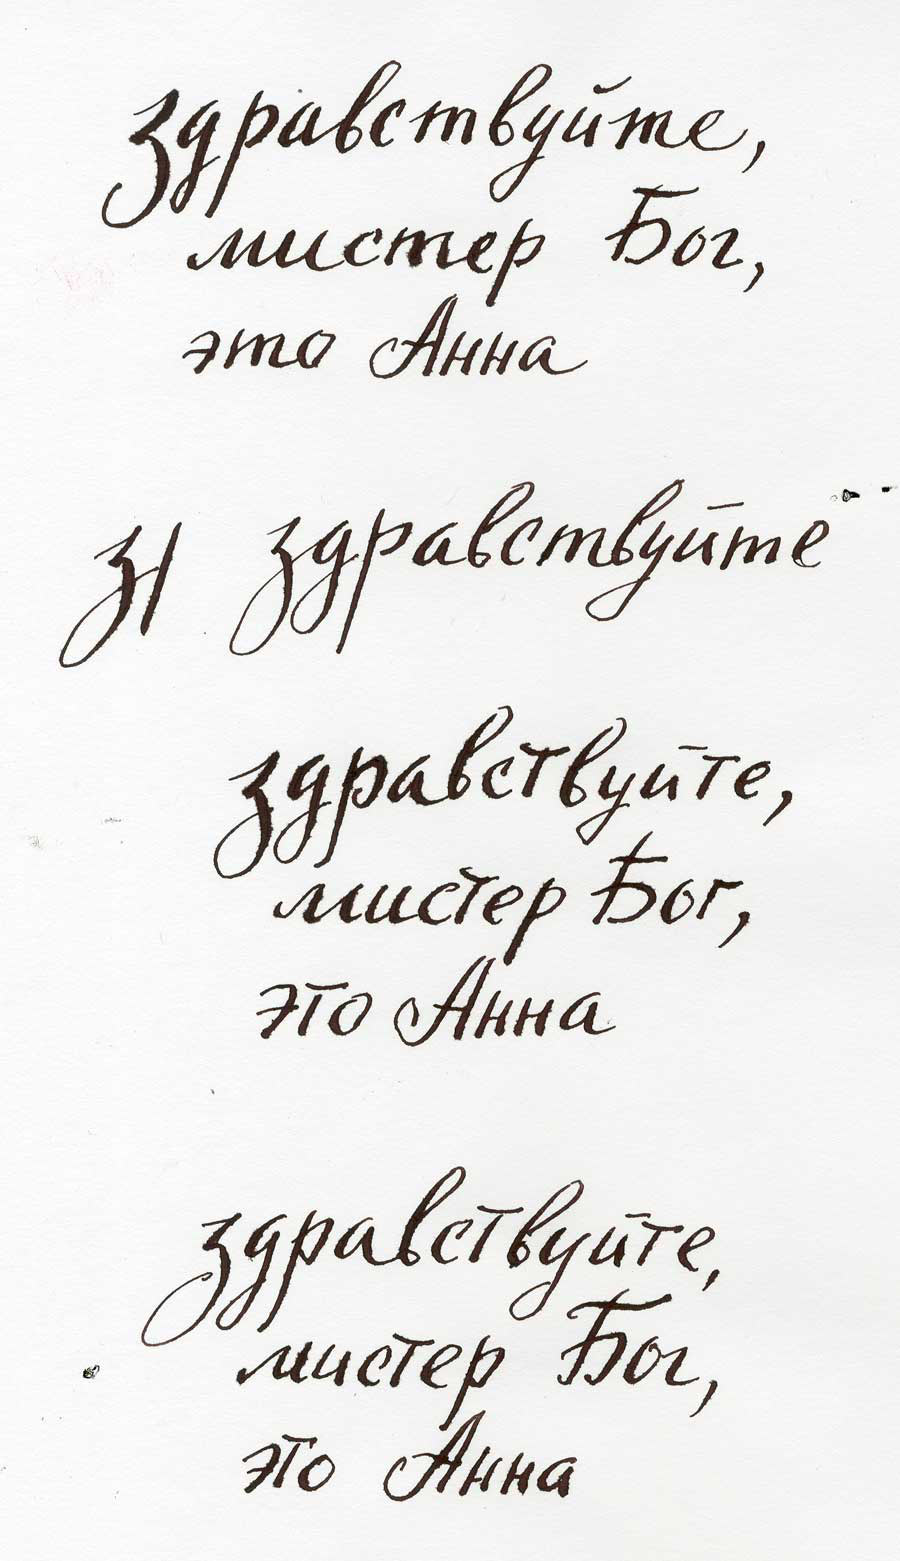 здравствуйте,
мистер Бог,
это Анна
з здравствуйте
здравствуйте,
мистер Бог,
это Анна
здравствуйте,
мистер Бог,
это Анна